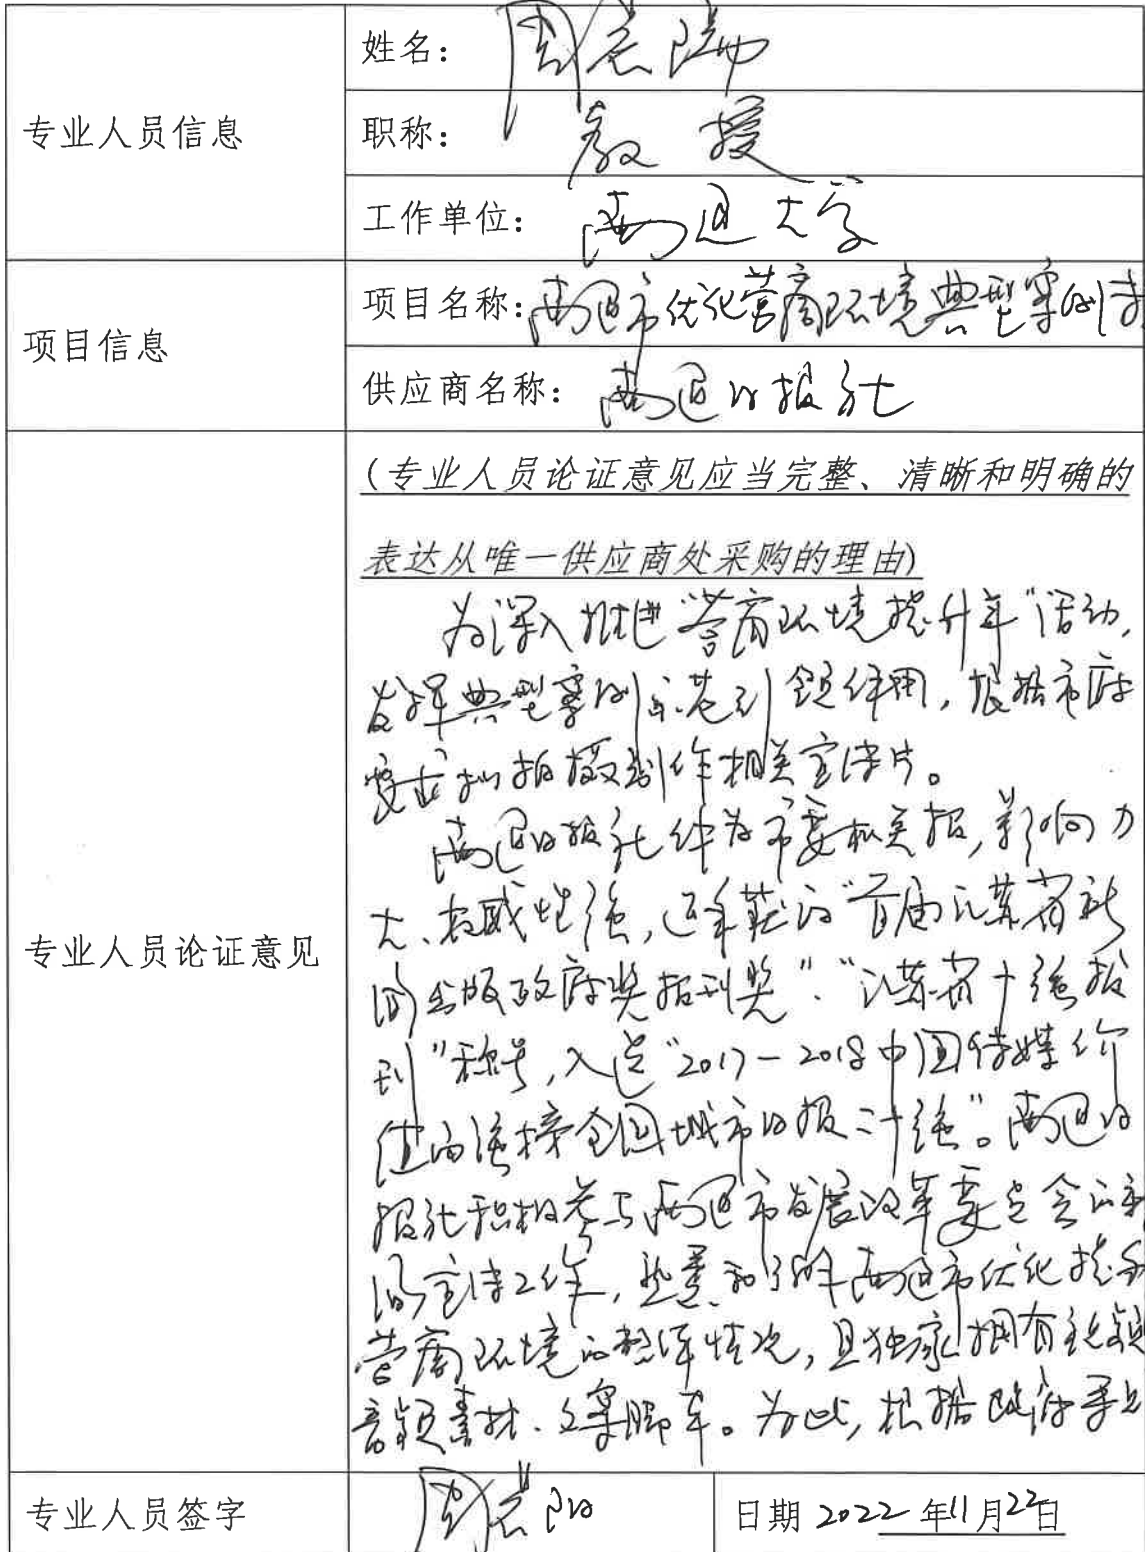 专业人员信息
姓名：周
职称：教授
工作单位：南通大学
项目信息
项目名称：南通市优化营商环境典型案例
供应商名称：南通日报社
专业人员论证意见
(专业人员论证意见应当完整、清晰和明确的
表达从唯一供应商处采购的理由)
为深入推进“营商环境提升年”活动，
发挥典型案例示范引领作用，根据市府
要求拟拍摄制作相关宣传片。
南通日报社作为市委机关报，影响力
大、权威性强，近年获的“首届江苏省新
闻出版政府奖报刊奖”、“江苏省十强报
刊”称号，入选“2017-2018中国传媒价
值百强榜全国城市日报二十强”。南通日
报社积极参与南通市发展改革委员会的新
闻宣传工作，熟悉和了解南通市优化提升
营商环境的整体情况，且独家拥有
音频素材、文案脚本。为此，根据政府采
专业人员签字
周
日期 2022年11月22日